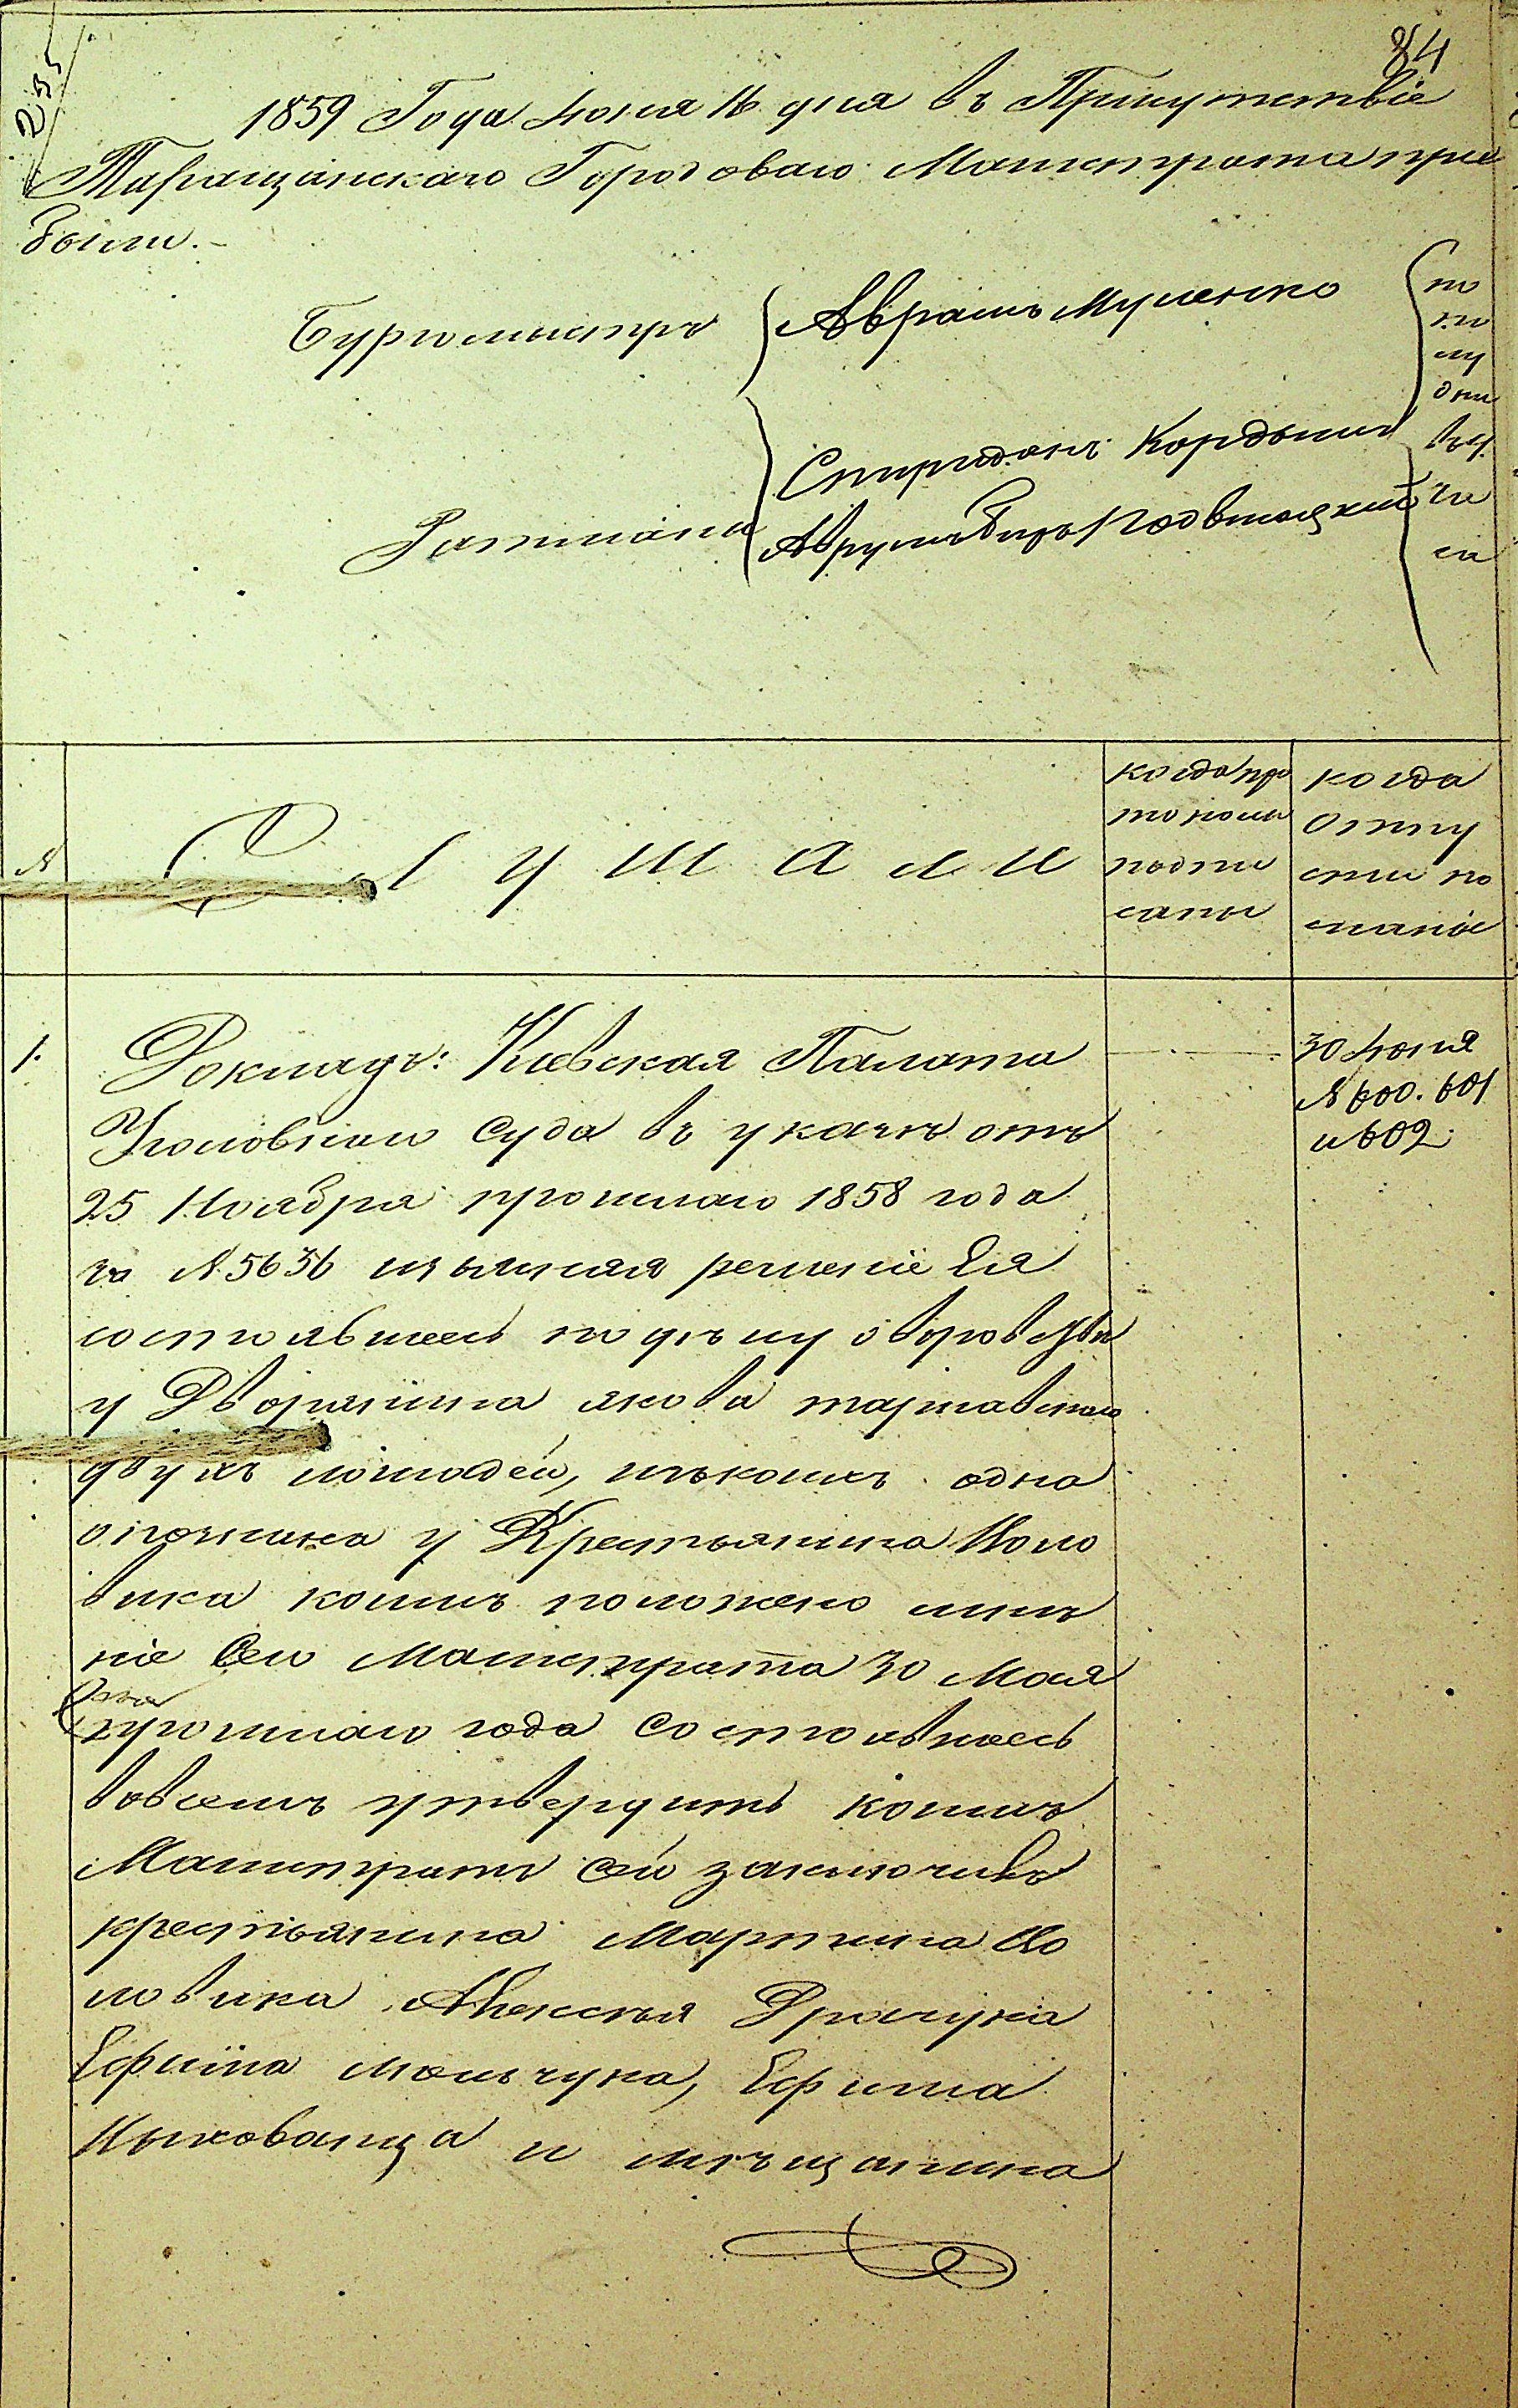 235
84
1859 Года Июня 16 дня въ Присутствіе
Таращанскаго Городоваго Магистрата при
были.
Бургомистръ
Аврамъ Мусенко
Ратманы
Спиридонъ Кордышъ
Аврумъ Беръ
по
по
лу
дни
въ
ча
са
№
Слушали
когда про
токолы
подпи
саны
когда
отпу
сти по
сланіе
1.
Докладъ: Кіевская Палата
Уголовнаго Суда въ указѣ отъ
25 Ноября прошлаго 1858 года
за №5636 изъясняя решеніе Ея
состоявшеесь по дѣлу о воровствѣ
у Дворянина Якова
двухъ лошадей, изъкоихъ одна
опознана у Крестьянина Воло
вика коимъ положено мнѣ
ніе сего Магистрата 30 Мая
прошлаго года состоявшеесь
вовсемъ утвердить коимъ
Магистратъ сей заключивъ
крестьянина Мартина Во
ловика Алексѣя Драчука
Ефима Мельчука, Ефима
и мѣщанина
30 Июня
№ 600. 601
и 602.